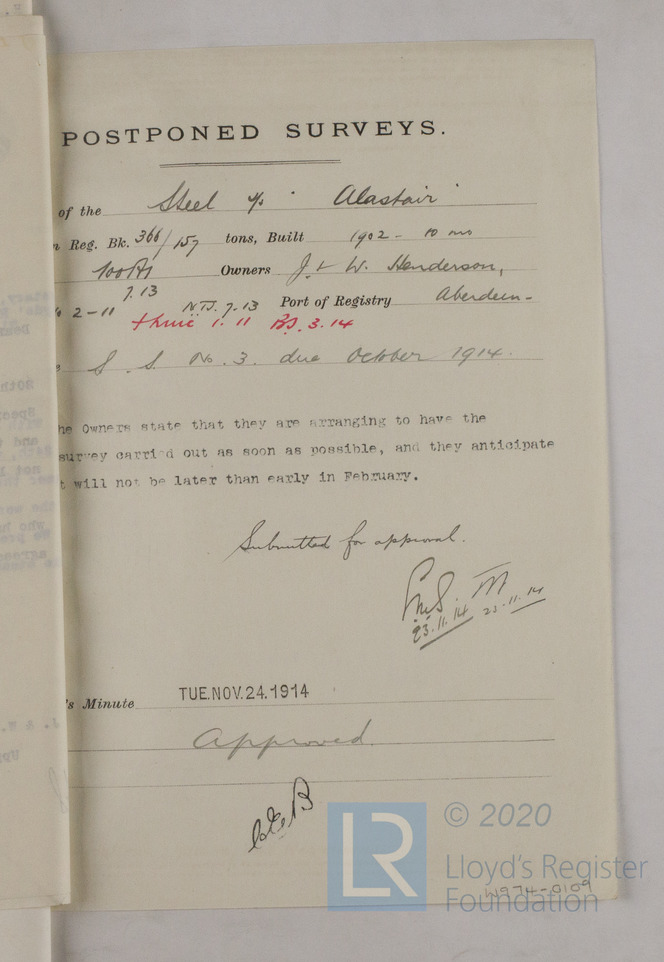 POSTPONED SURVEYS.
of the Steel s/s "Alastair"
Reg. Bk. 366/157 tons, Built 1902 - 10 mo
100A1 Owners J. & W. Henderson,
7.13
2-11 N.T.S. 7.13 Port of Registry Aberdeen -
1.11 BS. 3.14
S. S. No. 3. due October 1914.
he Owners state that they are arranging to have the
survey carried out as soon as possible, and they anticipate
t will not be later than early in February.
Submitted for approval.
23.11.14 23.11.14
's Minute TUE.NOV.24.1914
Approved.
LR © 2020
Lloyd's Register
Foundation
W974-0109